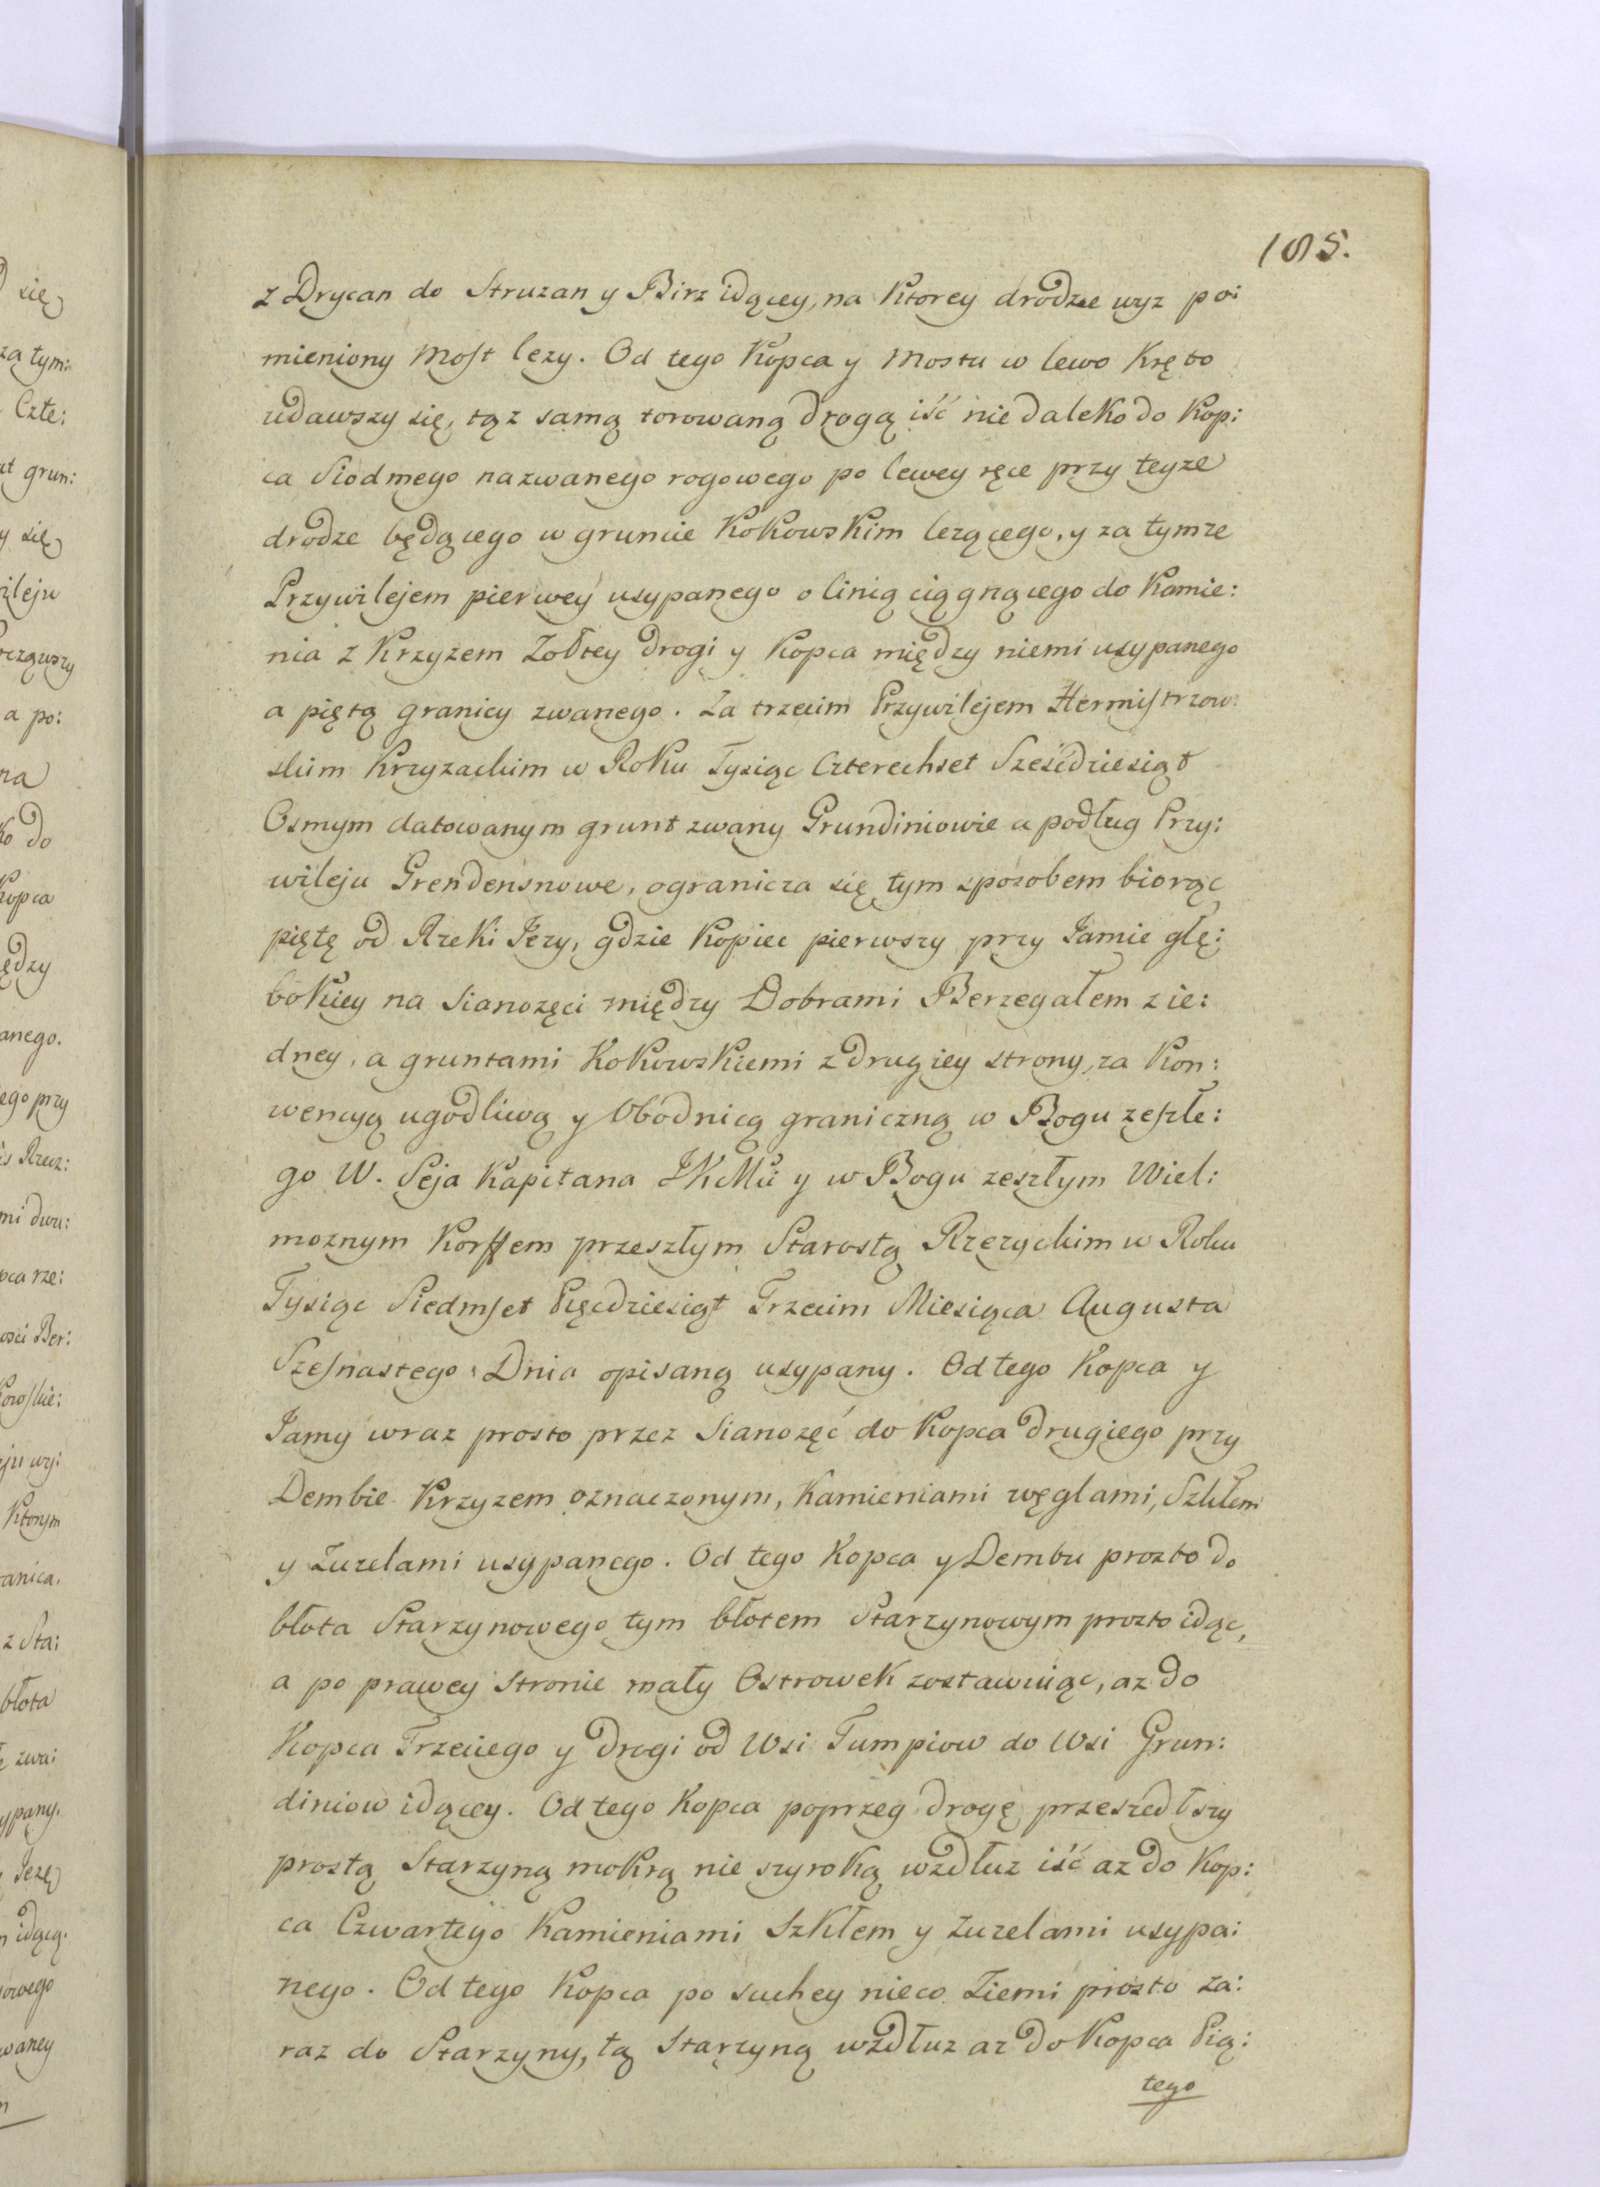 185.
z Drycan do Struzan y Birz idącey, na Ktorey drodze wyz po:
mieniony Most lezy. Od tego Kopca y Mostu w lewo Kręto
udawszy się, tąz samą torowaną drogą iść nie daleko do Kop:
ca Siodmego nazwanego rogowego po lewey ręce przy teyze
drodze będącego w gruncie KoKowsKim lezącego, y za tymze
Przywilejem pierwey usypanego o linią ciągnącego do Kamie:
nia z Krzyzem Zołtey drogi y Kopca między niemi usypanego
a piętą granicy zwanego. Za trzecim Przywilejem Hermistrzow:
skim Krzyzackim w RoKu Tysiąc Czterechset Sześćdziesiąt
Osmym datowanym grunt zwany Grundiniowie a podług Przy:
wileju Grendensnowe, ogranicza się tym sposobem biorąc
piętę od RzeKi Iezy, gdzie Kopiec pierwszy przy Iamie głę:
boKiey na Sianozęci między Dobrami Berzegałem z ie:
dney, a gruntami KoKowsKiemi z drugiey strony, za Kon:
wencyą ugodliwą y Obodnicą graniczną w Bogu zeszłe:
go W. Seja Kapitana JKMci y w Bogu zeszłym Wiel:
moznym Korffem przeszłym Starostą Rzezyckim w Roku
Tysiąc Siedmset Pięcdziesiąt Trzecim Miesiąca Augusta
Szesnastego Dnia opisaną usypany. Od tego Kopca y
Iamy wraz prosto przez Sianozęć do Kopca drugiego przy
Dembie Krzyzem oznaczonym, Kamieniami węglami, Szkłem
y Zuzelami usypanego. Od tego Kopca y Dembu prozto do
błota Starzynowego tym błotem Starzynowym prozto idąc,
a po prawey stronie mały OstroweK zostawuiąc, az do
Kopca Trzeciego y drogi od Wsi Tumpiow do Wsi Grun:
diniow idącey. Od tego Kopca poprzeg drogę przeszedłszy
prostą Starzyną moKrą nie szyroKą wzdłuz iść az do Kop:
ca Czwartego Kamieniami SzKłem y Zuzelami usypa:
nego. Od tego Kopca po suchey nieco Ziemi prozto za:
raz do Starzyny, tą Starzyną wzdłuz az do Kopca Pią:
tego